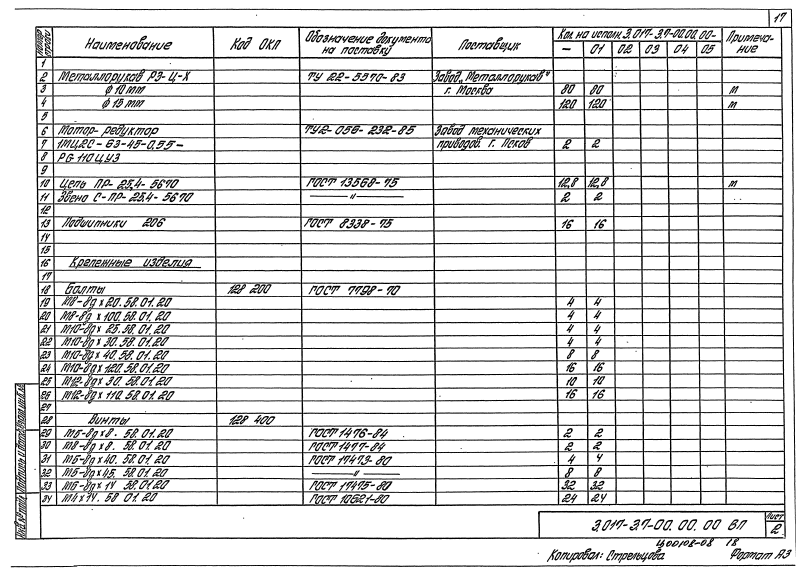 17
Номер строки Наименование Код ОКП Обозначение документа на поставку Поставщик Кол. на исполн. 3.017-3.7-00.00.00- Примечание
– 01 02 03 04 05
1
2 Металлорукав РЗ-Ц-Х ТУ 22-5570-83 Завод „Металлорукав"
3 ф 10 mm г. Москва 80 80 м
4 ф 15 mm 120 120 м
5
6 Мотор-редуктор ТУ2-056-232-85 Завод механических
7 1МЦ2С-63-45-0,55- приводов. г. Псков 2 2
8 РG 110 ЦУЗ
9
10 Цепь ПР-25,4-5670 ГОСТ 13568-75 12,8 12,8 м
11 Звено С-ПР-25,4-5670 —"— 2 2
12
13 Подшипники 206 ГОСТ 8338-75 16 16
14
15
16 Крепежные изделия
17
18 Болты 128 200 ГОСТ 7798-70
19 М8-8g×20.58.01.20 4 4
20 М8-8g×100.58.01.20 4 4
21 М10-8g×25.58.01.20 4 4
22 М10-8g×30.58.01.20 4 4
23 М10-8g×40.58.01.20 8 8
24 М10-8g×120.58.01.20 16 16
25 М12-8g×30.58.01.20 10 10
26 М12-8g×110.58.01.20 16 16
27
28 Винты 128 400
29 М5-8g×8.58.01.20 ГОСТ 1476-84 2 2
30 М8-8g×8.58.01.20 ГОСТ 1477-84 2 2
31 М5-8g×40.58.01.20 ГОСТ 17473-80 4 4
32 М5-8g×45.58.01.20 —"— 8 8
33 М6-8g×14 58.01.20 ГОСТ 17475-80 32 32
34 М4×14.58 01.20 ГОСТ 10621-80 24 24
Инв. № подл. Подпись и дата Взам. инв. №
3.017-3.7-00.00.00 ВП
Лист
2
Ц00108-08 18
Копировал: Стрельцова Формат А3